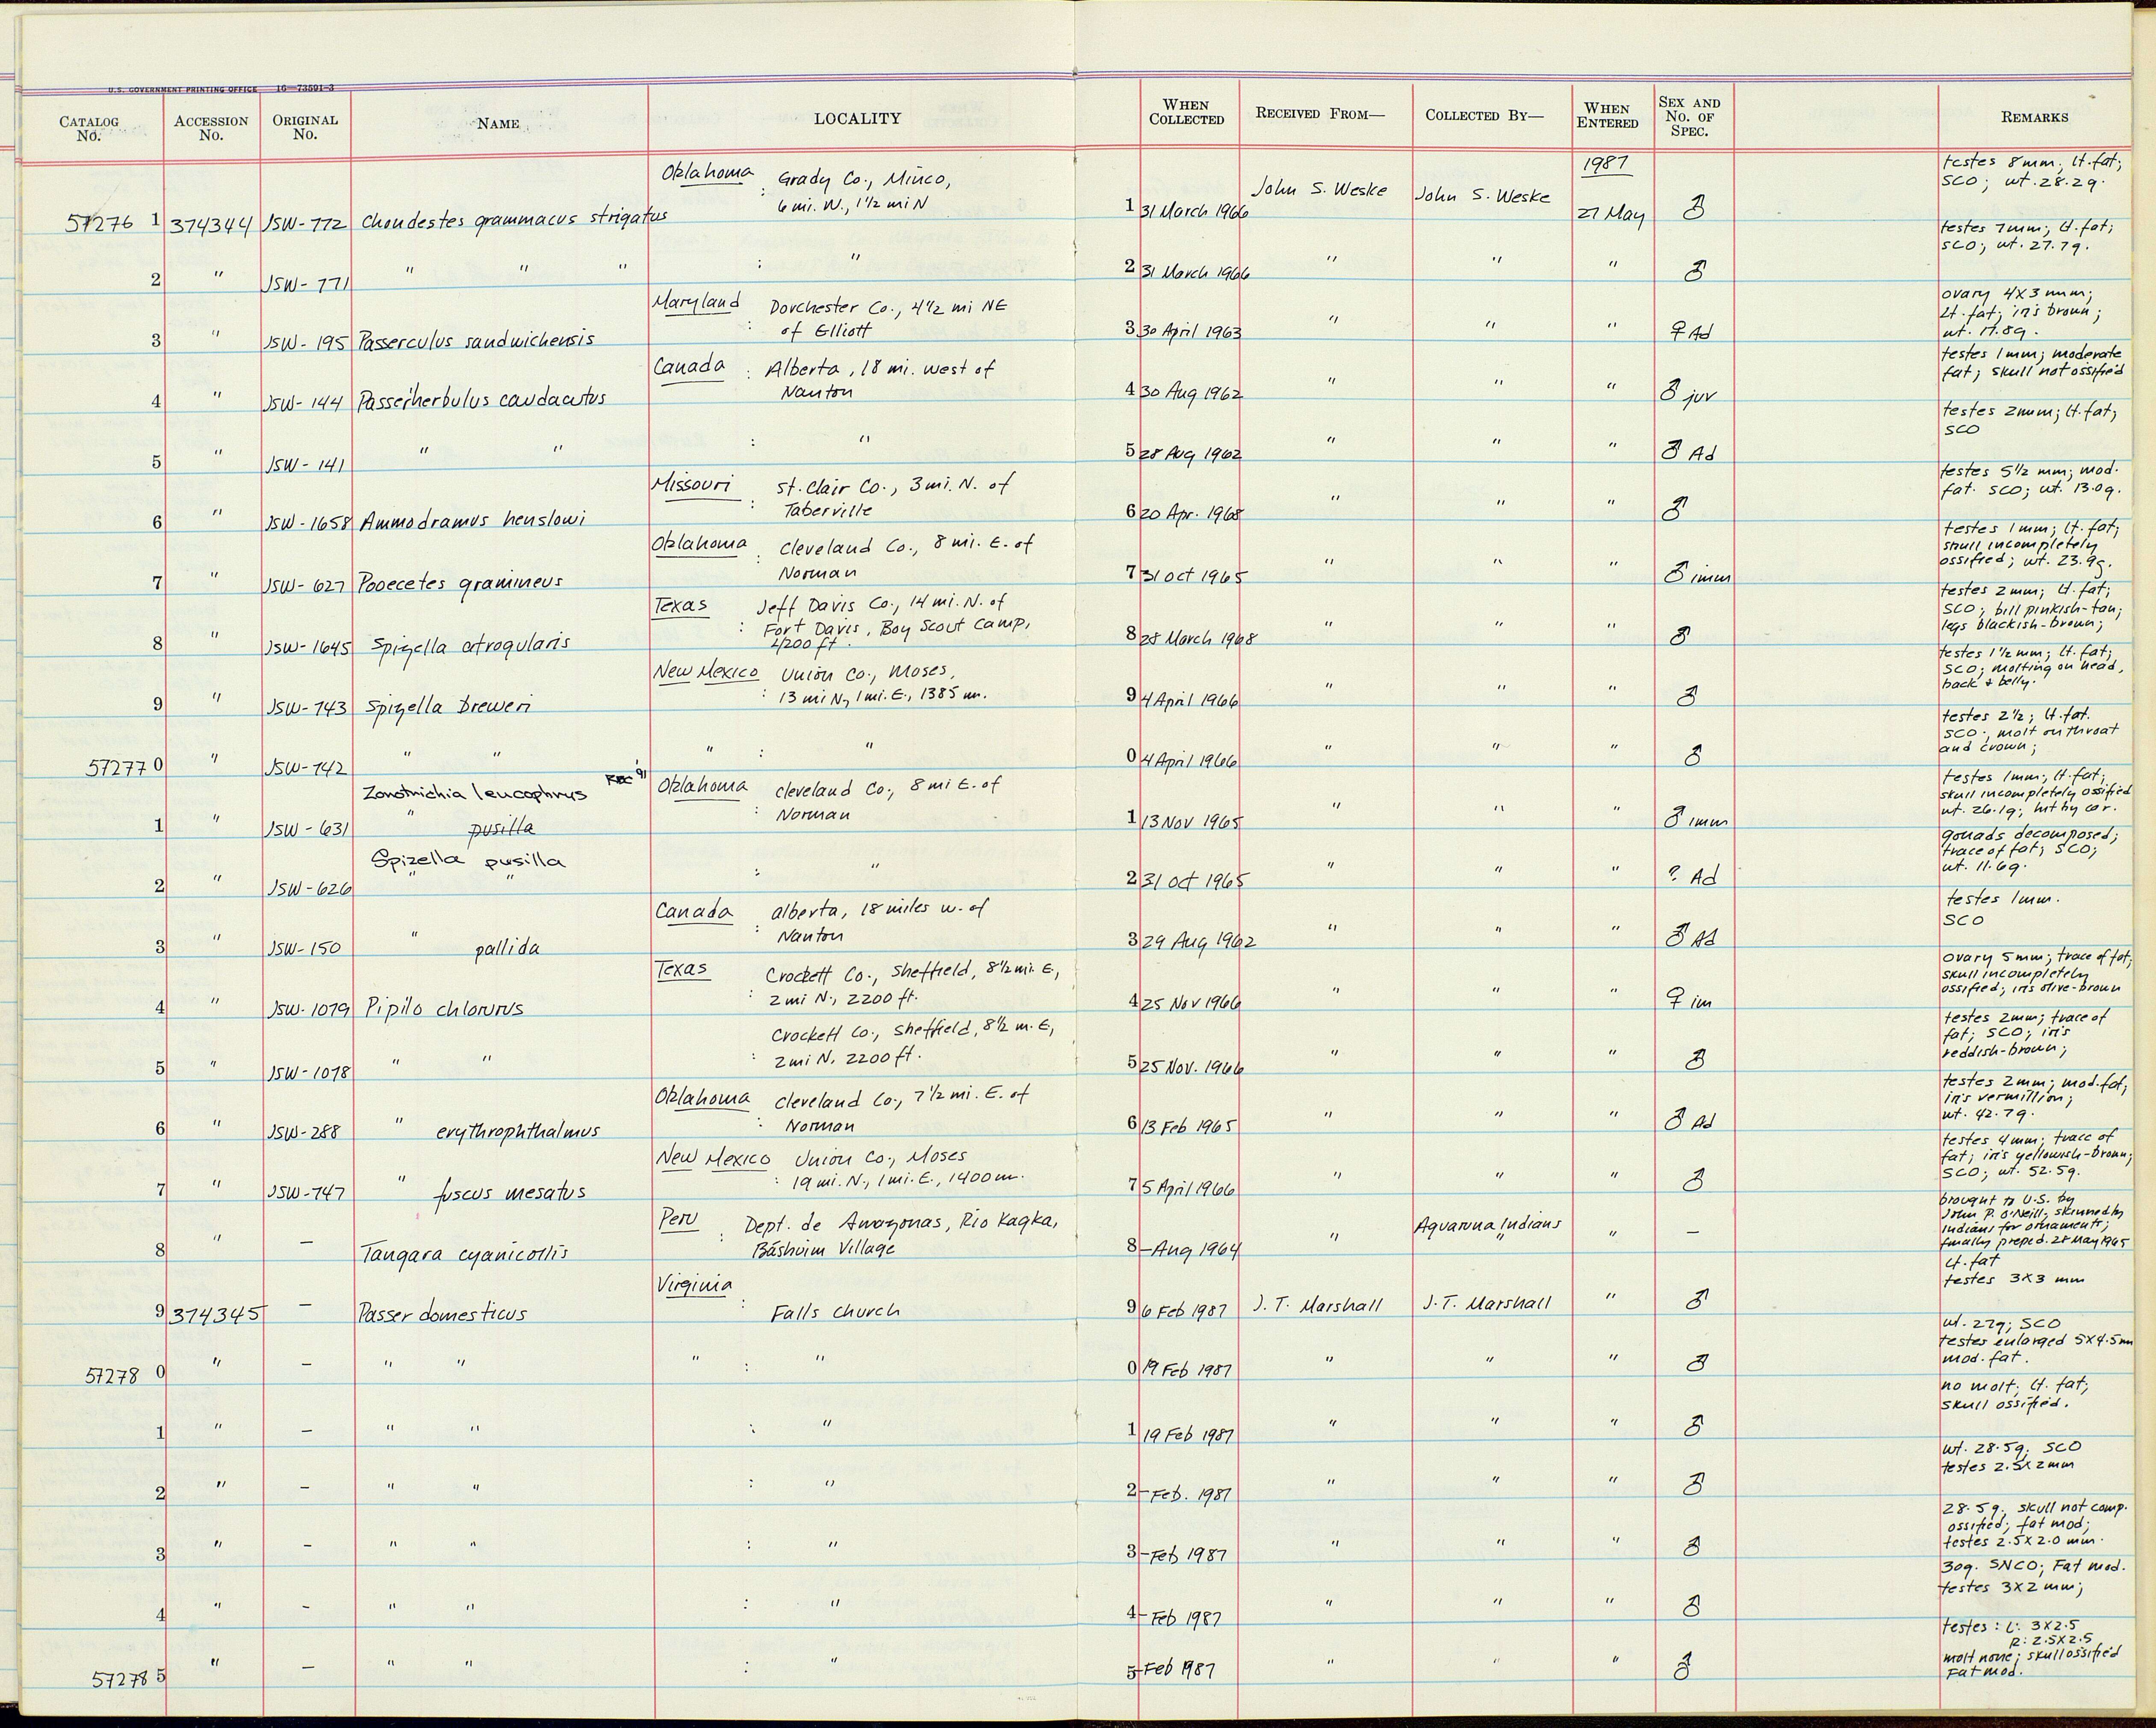 U.S. GOVERNMENT PRINTING OFFICE 16—73591-3
CATALOG No. ACCESSION No. ORIGINAL No. NAME LOCALITY WHEN COLLECTED RECEIVED FROM— COLLECTED BY— WHEN ENTERED SEX AND No. OF SPEC. REMARKS
1987
Oklahoma : Grady Co., Minco, testes 8mm; lt. fat;
6 mi. W., 1½ mi N SCO; wt. 28.2g.
57276 1 374344 JSW-772 Chondestes grammacus strigatus 1 31 March 1966 John S. Weske John S. Weske 27 May ♂
testes 7mm; lt. fat;
SCO; wt. 27.7g.
2 " JSW-771 " " " : " 2 31 March 1966 " " " ♂
Maryland : Dorchester Co., 4½ mi NE ovary 4x3 mm;
of Elliott lt. fat; iris brown;
3 " JSW-195 Passerculus sandwichensis 3 30 April 1963 " " " ♀ Ad wt. 17.8g.
Canada : Alberta, 18 mi. west of testes 1mm; moderate
Nanton fat; skull not ossified
4 " JSW-144 Passerherbulus caudacutus 4 30 Aug 1962 " " " ♂ juv
testes 2mm; lt. fat;
SCO
5 " JSW-141 " " : " 5 28 Aug 1962 " " " ♂ Ad
Missouri : St. Clair Co., 3 mi. N. of testes 5½ mm; mod.
Taberville fat. SCO; wt. 13.0g.
6 " JSW-1658 Ammodramus henslowi 6 20 Apr. 1968 " " " ♂
Oklahoma : Cleveland Co., 8 mi. E. of testes 1mm; lt. fat;
Norman skull incompletely
7 " JSW-627 Pooecetes gramineus 7 31 Oct 1965 " " " ♂ imm ossified; wt. 23.9g.
Texas : Jeff Davis Co., 14 mi. N. of testes 2mm; lt. fat;
Fort Davis, Boy Scout Camp, SCO; bill pinkish-tan;
4200 ft. legs blackish-brown;
8 " JSW-1645 Spizella atrogularis 8 28 March 1968 " " " ♂
New Mexico : Union Co., Moses, testes 1½ mm; lt. fat;
13 mi N., 1 mi. E., 1385 m. SCO; molting on head,
9 " JSW-743 Spizella breweri 9 4 April 1966 " " " ♂ back & belly.
testes 2½; lt. fat.
SCO; molt on throat
and crown;
57277 0 " JSW-742 " " " : " 0 4 April 1966 " " " ♂
Zonotrichia leucophrys RBC '91 Oklahoma : Cleveland Co., 8 mi E. of testes 1mm; lt. fat;
Norman skull incompletely ossified
1 " JSW-631 " pusilla 1 13 Nov 1965 " " " ♂ imm wt. 26.1g; hit by car.
Spizella pusilla gonads decomposed;
trace of fat; SCO;
2 " JSW-626 " " : " 2 31 Oct 1965 " " " ? Ad wt. 11.6g.
Canada : alberta, 18 miles w. of testes 1mm.
Nanton SCO
3 " JSW-150 " pallida 3 29 Aug 1962 " " " ♂ Ad
Texas : Crockett Co., Sheffield, 8½ mi. E, ovary 5mm; trace of fat;
2 mi N., 2200 ft. skull incompletely
4 " JSW-1079 Pipilo chlorurus 4 25 Nov 1966 " " " ♀ im ossified; iris olive-brown
Crockett Co., Sheffield, 8½ m. E, testes 2mm; trace of
: 2 mi N. 2200 ft. fat; SCO; iris
5 " JSW-1078 " " 5 25 Nov. 1966 " " " ♂ reddish-brown;
Oklahoma : Cleveland Co., 7½ mi. E. of testes 2mm; mod. fat;
Norman iris vermillion;
6 " JSW-288 " erythrophthalmus 6 13 Feb 1965 " " " ♂ Ad wt. 42.7g.
New Mexico : Union Co., Moses testes 4mm; trace of
19 mi. N., 1 mi. E., 1400 m. fat; iris yellowish-brown;
7 " JSW-747 " fuscus mesatus 7 5 April 1966 " " " ♂ SCO; wt. 52.5g.
Peru : Dept. de Amazonas, Rio Kagka, brought to U.S. by
Báshuim Village John P. O'Neill; skinned by
Indians for ornaments;
8 " — Tangara cyanicollis 8 — Aug 1964 " Aguaruna Indians " " — finally preped. 28 May 1965
Virginia lt. fat
testes 3x3 mm
9 374345 — Passer domesticus : Falls Church 9 6 Feb 1987 J. T. Marshall J. T. Marshall " ♂
wt. 27g; SCO
testes enlarged 5x4.5mm
mod. fat.
57278 0 " — " " " : " 0 19 Feb 1987 " " " ♂
no molt; lt. fat;
skull ossified.
1 " — " " : " 1 19 Feb 1987 " " " ♂
wt. 28.5g. SCO
testes 2.5x2mm
2 " — " " : " 2 — Feb. 1987 " " " ♂
28.5g. skull not comp.
ossified; fat mod;
testes 2.5x2.0 mm.
3 " — " " : " 3 — Feb 1987 " " " ♂
30g. SNCO; Fat mod.
testes 3x2 mm;
4 " — " " : " 4 — Feb 1987 " " " ♂
testes: L: 3x2.5
R: 2.5x2.5
molt none; skull ossified
Fat mod.
57278 5 " — " " : " 5 — Feb 1987 " " " ♂